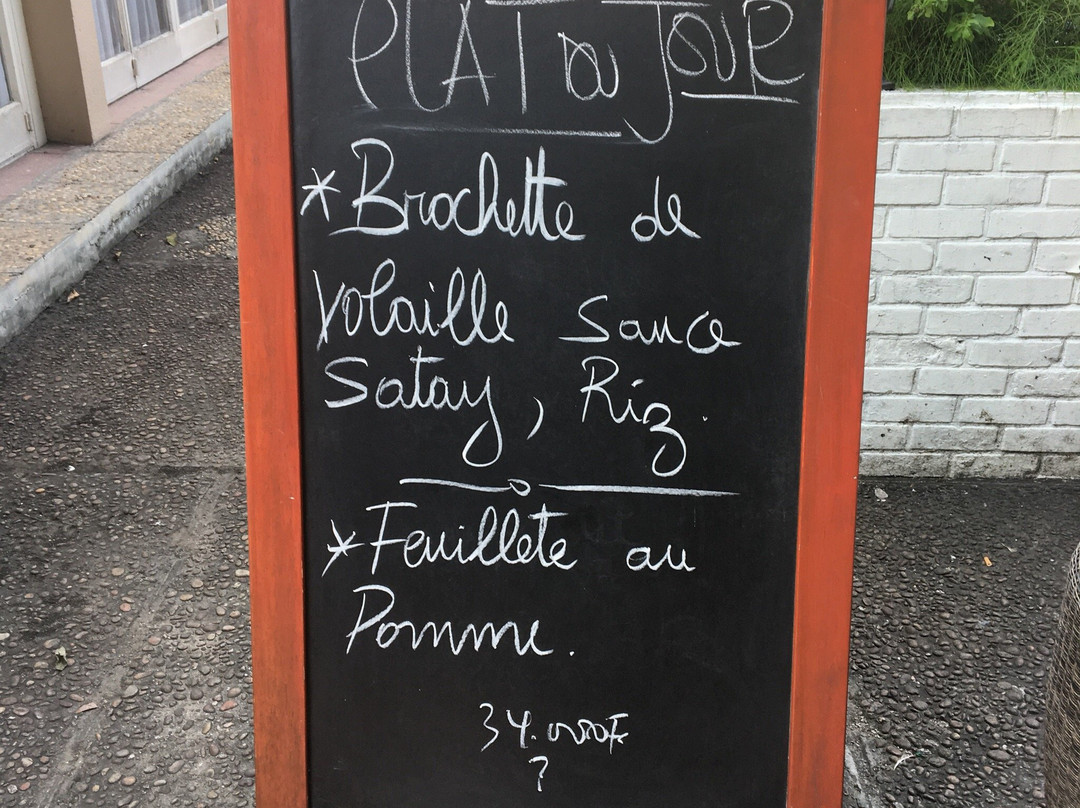 PLAT DU JOUR
* Brochette de
Volaille Sauce
Satay, Riz.
* Feuillete au
Pomme.
34.000F
?